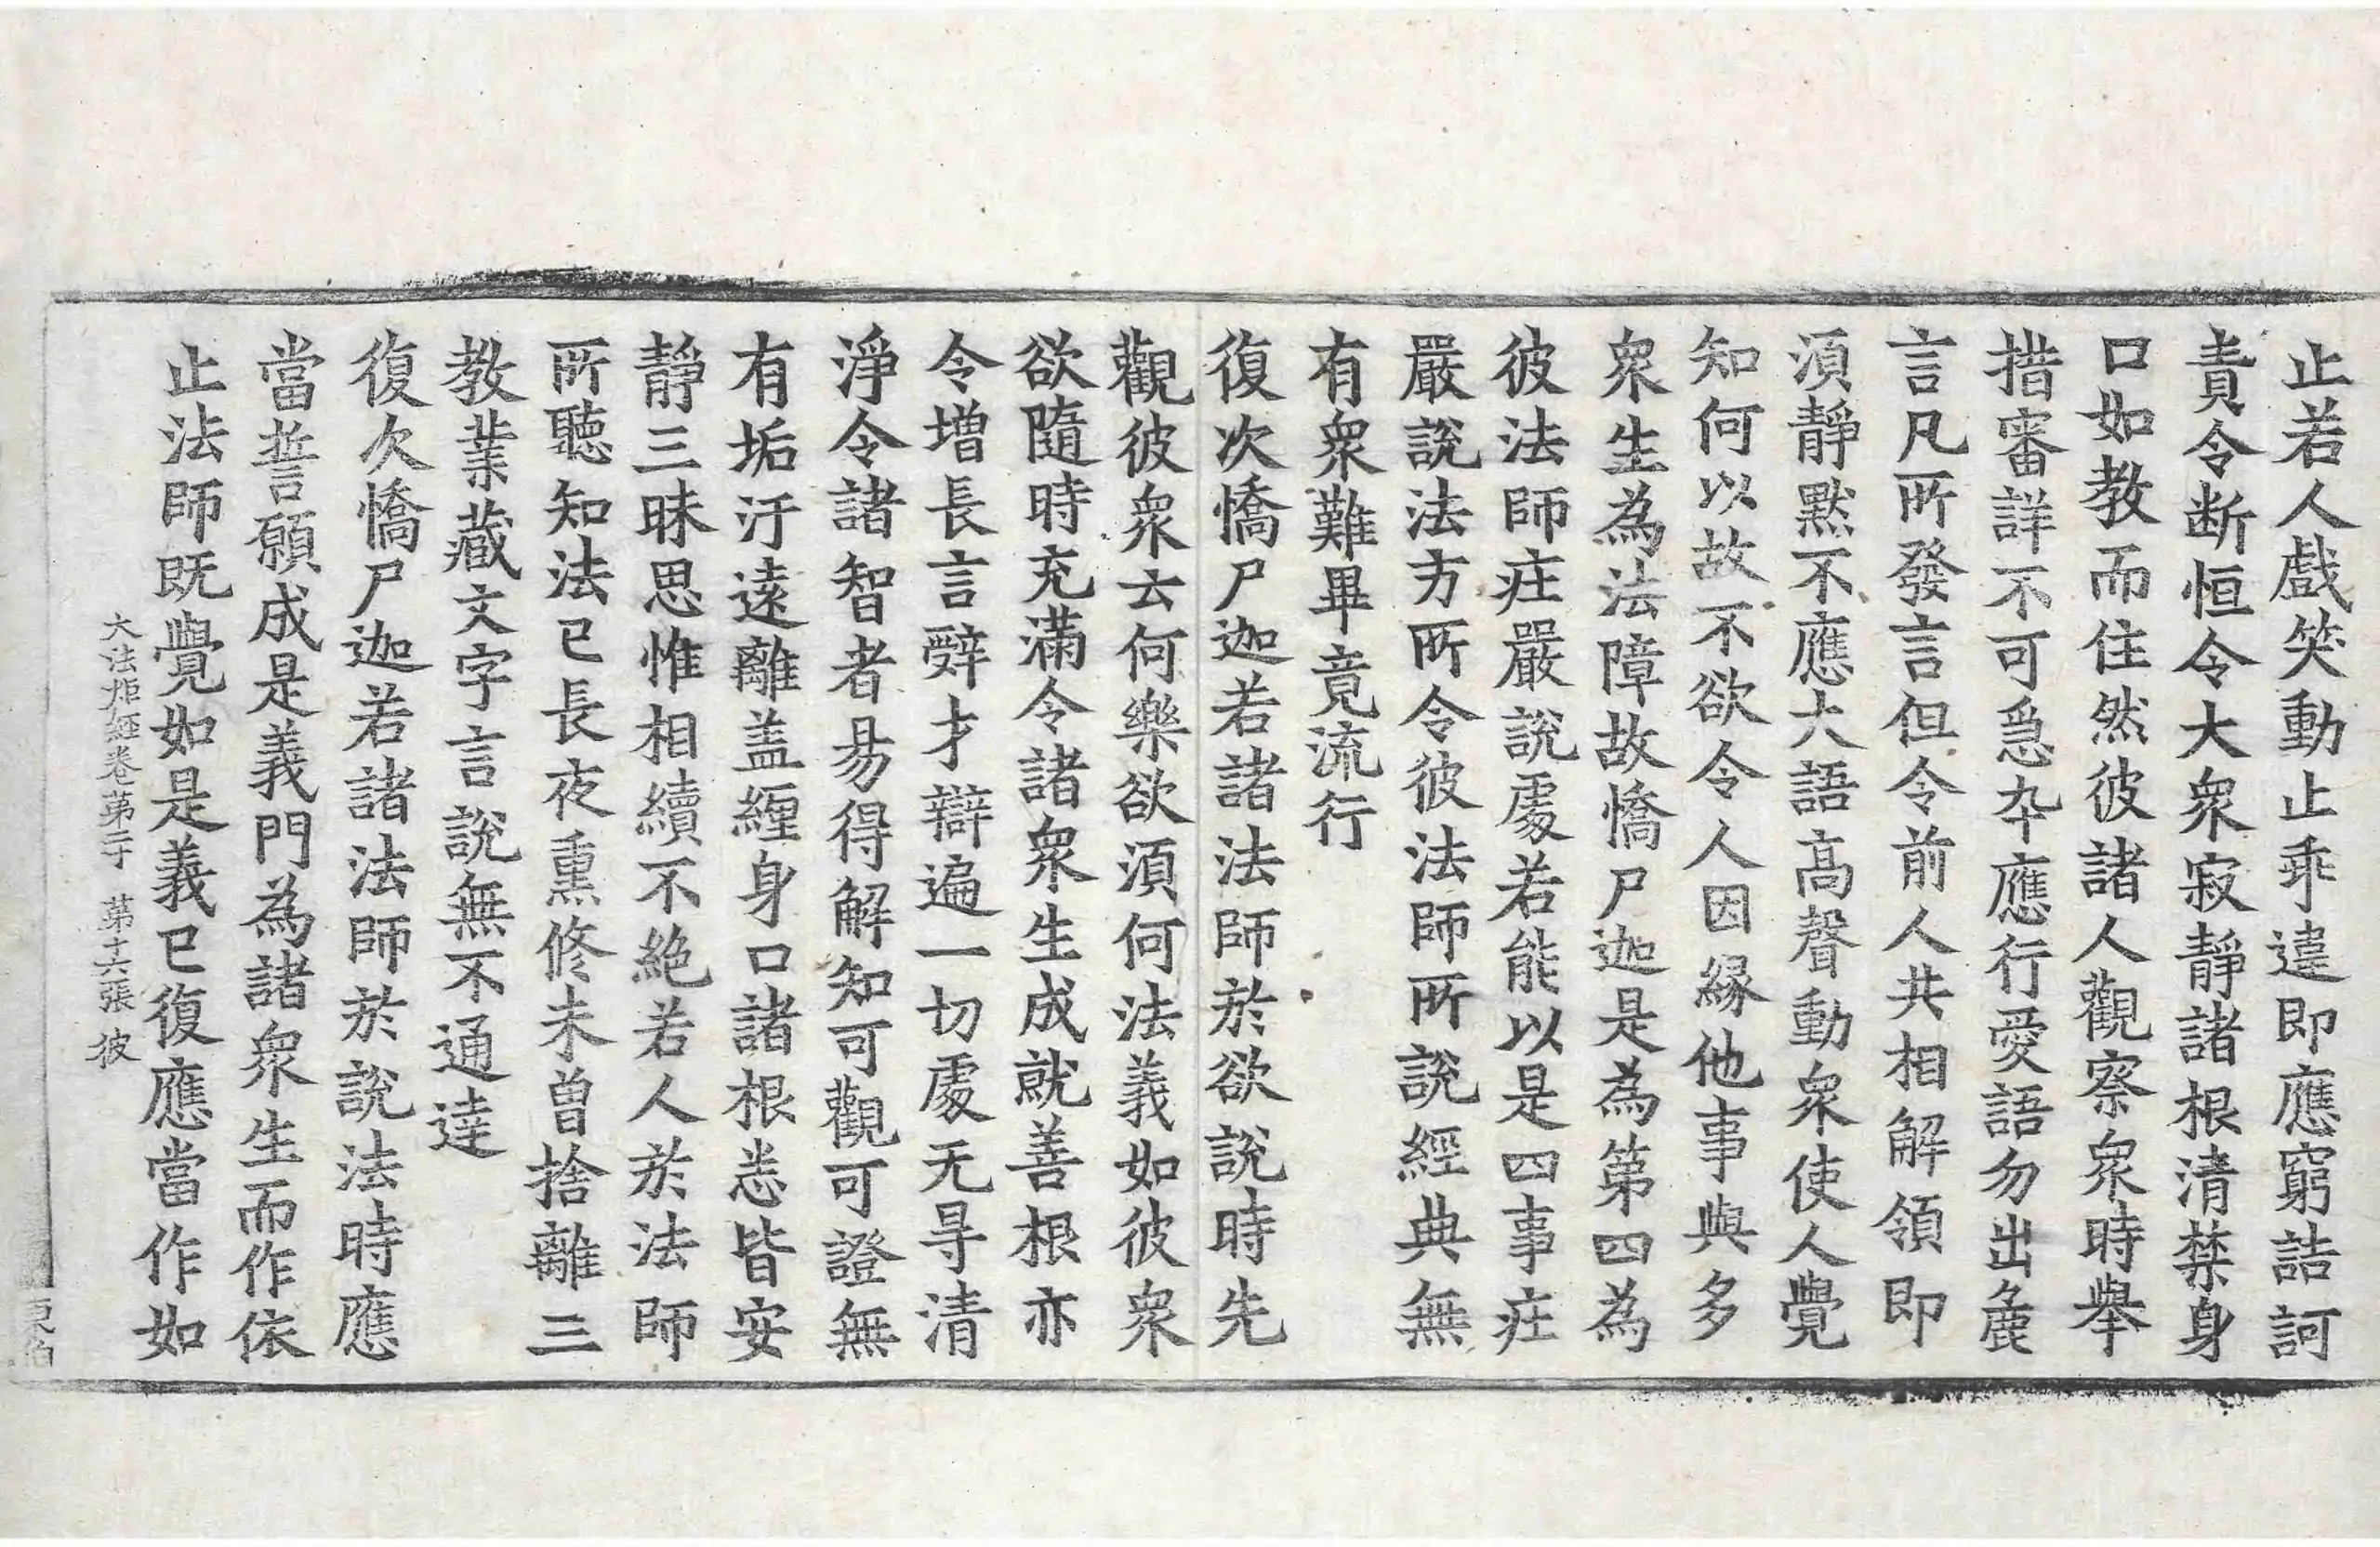 止若人戲笑動止乖違即應窮詰訶
責令断恒令大衆寂靜諸根清禁身
口如教而住然彼諸人觀察衆時舉
措審詳不可急卒應行愛語勿出麁
言凡所發言但令前人共相解領即
湏靜黙不應大語髙聲動衆使人覺
知何以故不欲令人因縁他事與多
衆生為法障故憍尸迦是為第四為
彼法師莊嚴說處若能以是四事莊
嚴說法方所令彼法師所說經典無
有衆難畢竟流行
復次憍尸迦若諸法師於欲說時先
觀彼衆云何樂欲湏何法義如彼衆
欲隨時充滿令諸衆生成就善根亦
令增長言辤才辯遍一切處无㝵清
淨令諸智者易得解知可觀可證無
有垢汙逺離盖纏身口諸根悉皆安
靜三昧思惟相續不絶若人於法師
所聽知法已長夜熏修未曽捨離三
教業藏文字言說無不通達
復次憍尸迦若諸法師於說法時應
當誓願成是義門為諸衆生而作依
止法師既覺如是義已復應當作如
大法炬經卷苐二十　苐十六張　彼